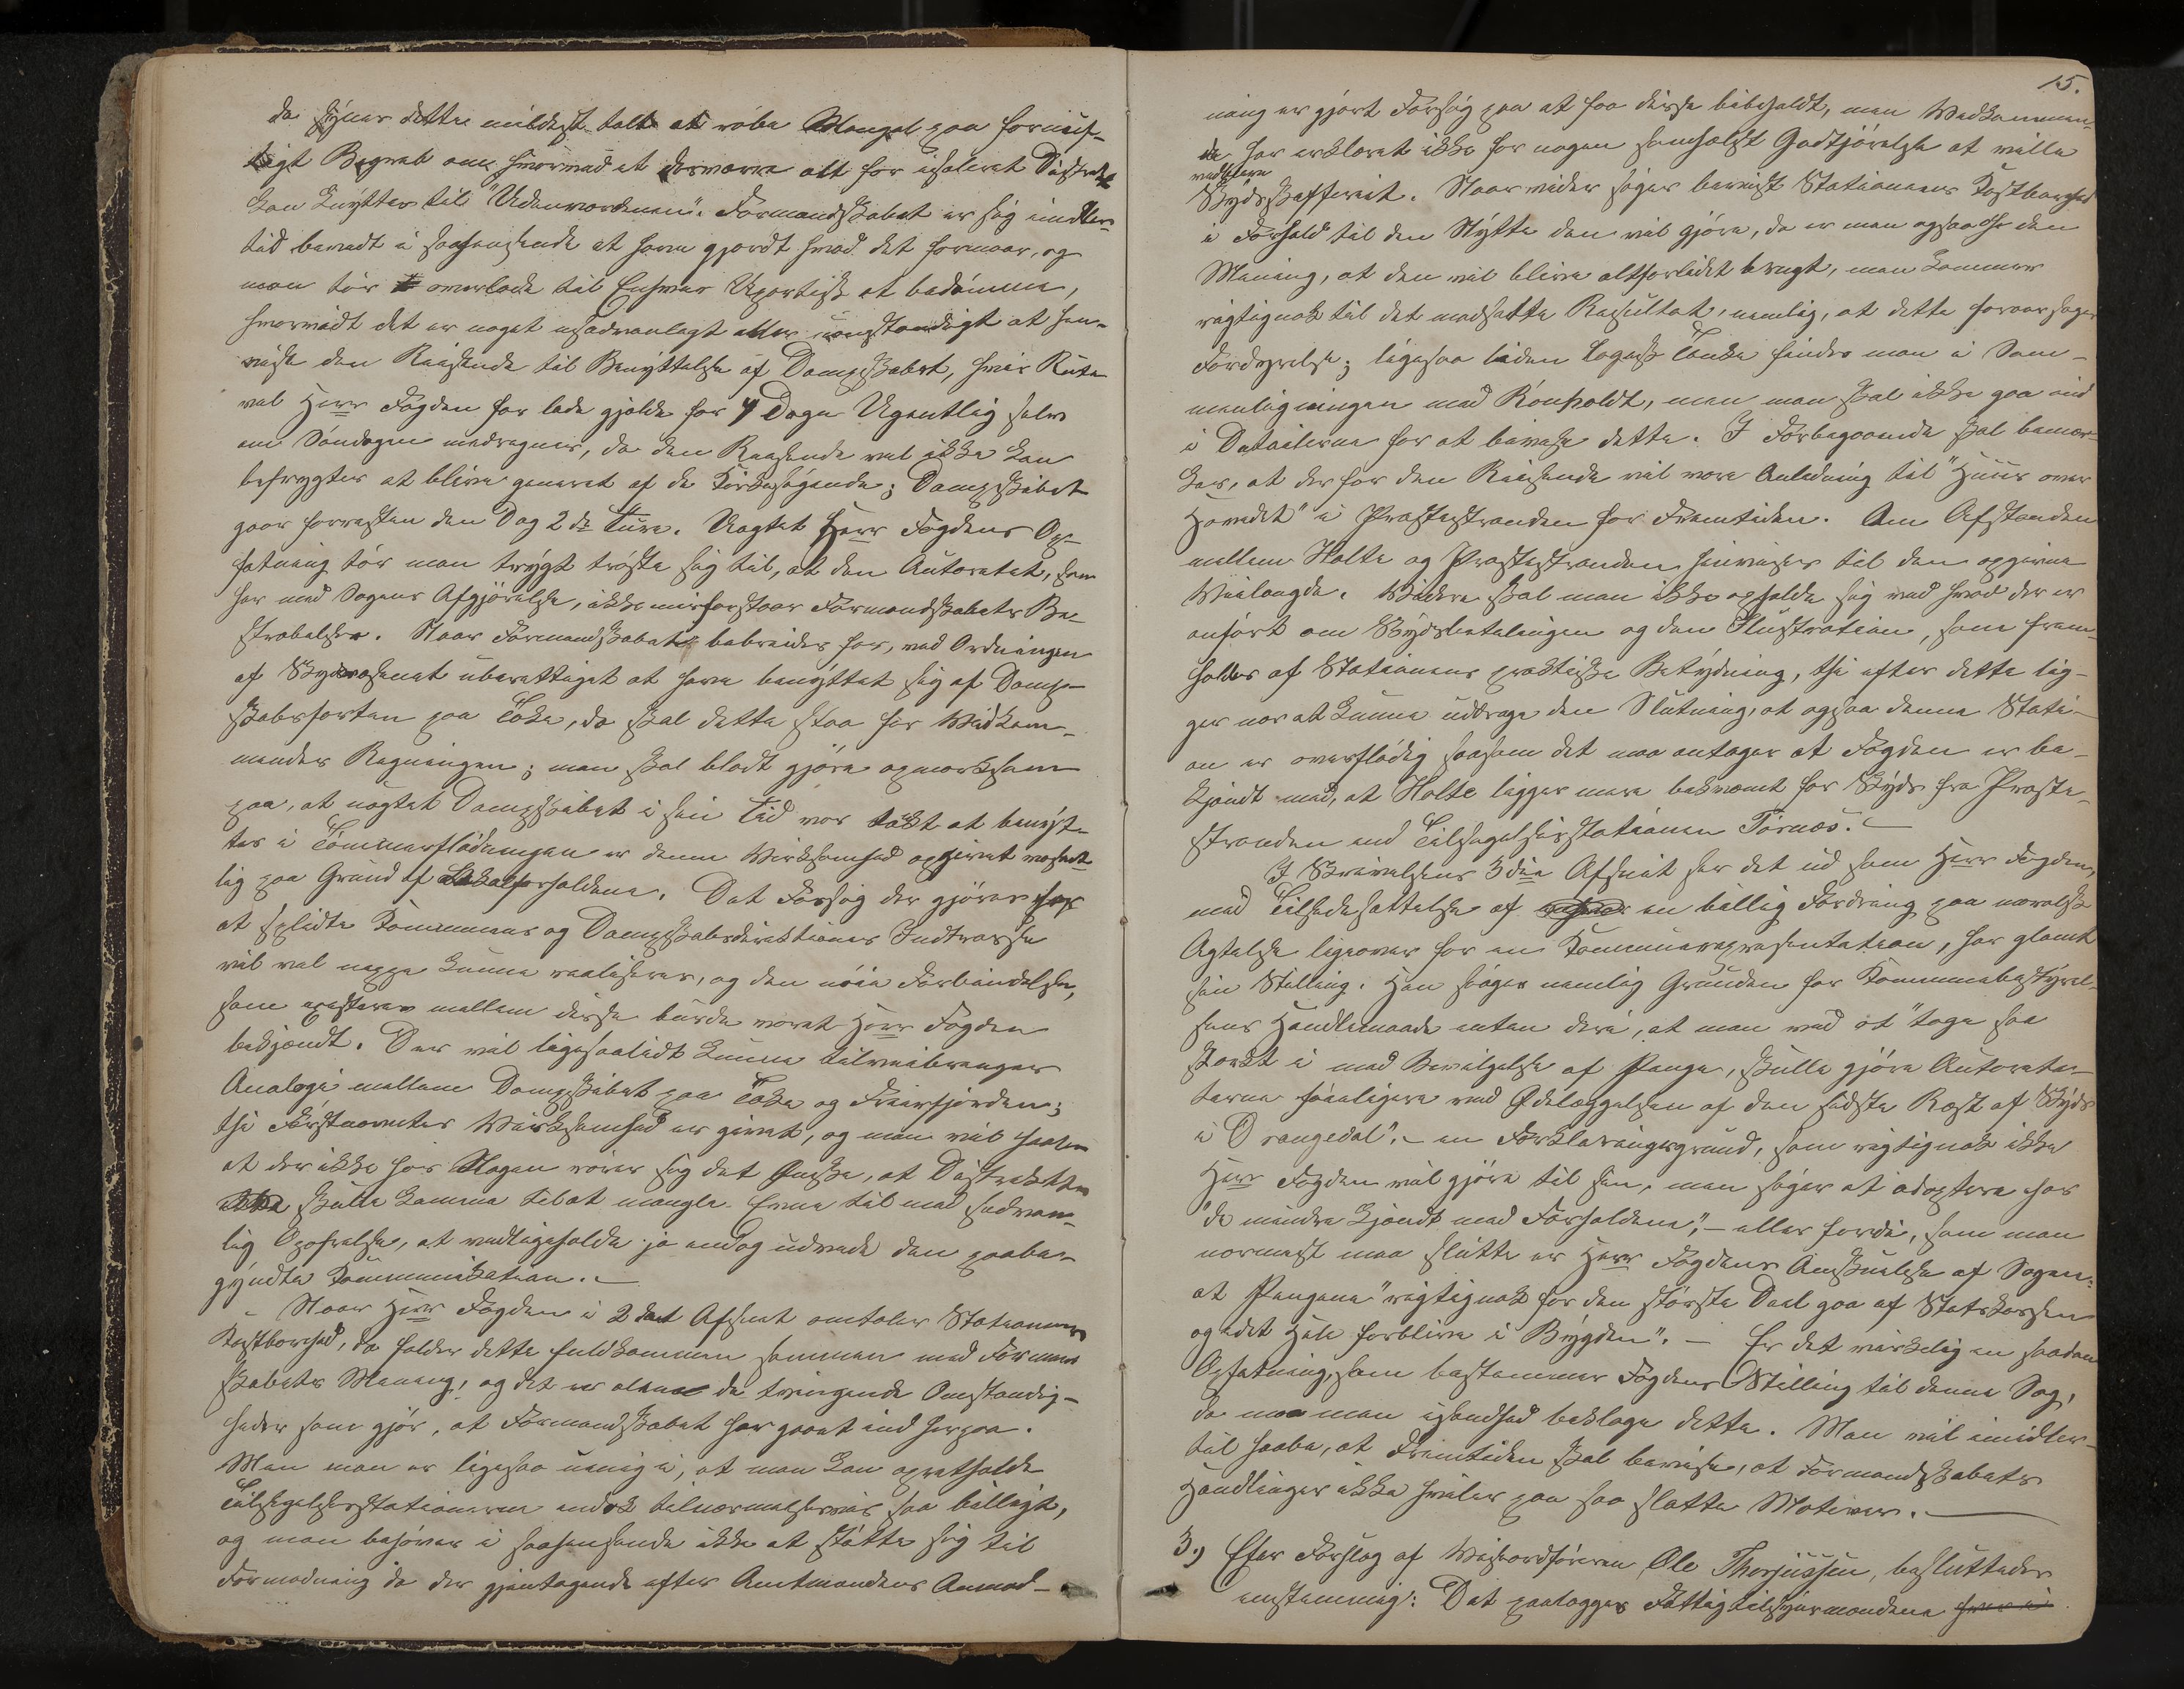 da synes dette mildest talt at røbe Mangel paa fornuf-
tigt Begreb om hvormed et desværre alt for isoleret Distrikt
kan knyttes til "Udenverdenen". Formandskabet er sig imidler-
tid bevidst i saahenseende at have gjordt hvad det formaar, og
man tør overlade til Enhver Upartisk at bedømme,
hvorvidt det er noget usædvanlagt eller uanstændigt at hen-
vise den Reisende til Benyttelse af Dampskibet, hvis Rute
vel Herr Fogden har lade gjelde for 4 Dage Ugentlig selv
om Søndagen medregnes, da den Reisende vel ikke kan
befrygtes at blive generet af de Kirkesøgende; Dampskibet
gaar forresten den Dag 2de Ture. Uagtet Herr Fogdens Op-
fatning tør man trygt trøste sig til, at den Autoritet, som
har med Sagens Afgjørelse, ikke misforstaar Formandskabets Be-
stræbelser. Naar Formandskabet bebreides for, ved Ordningen
af Skydsvæsenet uberettiget at have benyttet sig af Damp-
skibsfarten paa Toke, da skal dette staa for Vedkom-
mendes Regningen; man skal blodt gjøre opmærksom
paa, at uagtet Dampskibet i sin Tid var tækt at benyt-
tes i Tømmerflødningen er denne Virksomhed opgivet væsent-
lig paa Grund af Lokalforholdene. Det Forsøg der gjøres for
at splidte Kommunens og Dampskibsdirektionens Indtresse
vil vel neppe kunne realiseres, og den nøie Forbindelse,
som existerer mellem disse burde været Herr Fogden
bekjendt. Der vil ligesaalidt kunne tilveiebringes
Analogi mellem Dampskibet paa Toke og Freirfjorden;
thi Førstnævntes Virksomhed er givet, og man vil haabe
at der ikke hos Nogen rører sig det Ønske, at Distriktet
skulle komme til at mangle Evne til med sædvan-
lig Opofrelse, at vedligeholde ja endog udvide den paabe-
gyndte Kommunikation. –
– Naar Herr Fogden i 2det Afsnit omtaler Stationernes
Kostbarhed, da falder dette fuldkommen sammen med Formand
skabets Mening, og det er alene de tvingende Omstændig-
heder som gjør, at Formandskabet har gaaet ind herpaa.
Men man er ligesaa uenig i, at man kan opretholde
Tilsigelsesstationerne endok tilnærmelsesvis saa billigt,
og man behøver i saahenseende ikke at støtte sig til
Formodning da der gjentagende efter Amtmandens Anmod-
15.
ning er gjort Forsøg paa at faa disse bibeholdt, men Vedkommen-
de har erklæret ikke for nogen somhelst Godtgjørelse at ville
vedblive
Skydsskafferiet. Naar videre siges beviist Stationens Kostbarhed
i Forhold til den Nytte den vil gjøre, da er man ogsaa af den
Mening, at den vil blive altforlidet brugt, men kommer
rigtignok til det modsatte Resultat, nemlig, at dette foraarsager
Fordyrelse; ligesaa liden logisk Tanke findes man i Sam-
menligningen med Rønholdt, men man skal ikke gaa ind
i Detailerne for at bevise dette. I Forbegaaende skal bemær-
kes, at der for den Reisende vil være Anledning til "Huus over
Hovedet" i Prestestranden for Fremtiden. Om Afstanden
mellem Holte og Prestestranden henvises til den opgivne
Veilængde. Videre skal man ikke opholde sig med hvad der er
anført om Skydsbetalingen og den Illustration, som frem-
holdes af Stationens praktiske Betydning, thi efter dette lig-
ger nær at kunne uddrage den Slutning, at ogsaa denne Stati-
on er overflødig saasom det maa antages at Fogden er be-
kjendt med, at Holte ligger mere bekvemt for Skyds fra Preste-
stranden end Tilsigelsesstationen Tørnes. –
I Skrivelsens 3die Afsnit ser det ud som Herr Fogden,
med Tilsidesættelse af en billig Fordring paa moralsk
Agtelse ligeover for en Kommunerepresentation, har glemt
sin Stilling. Han søger nemlig Grunden for Kommunebestyrel-
sens Handlemaade enten deri, at man ved at "tage saa
stærkt i med Bevilgelse af Penge, skulle gjøre Autorite-
terne føieligere ved Ødelæggelsen af den sidste Rest af Skyds
i Drangedal". – en Forklaringsgrund, som rigtignok ikke
Herr Fogden vil gjøre til sin, men siger at adoptere hos
"de mindre kjendt med Forholdene", – eller fordi, som man
nærmest maa slutte er Herr Fogdens Anskuelse af Sagen:
at Pengene "rigtignok for den største Deel gaa af Statskassen
og det Hele forblive i Bygden". – Er det virkelig en saadan
Opfatning, som bestemmer Fogdens Stilling til denne Sag,
da maa man isandhed beklage dette. Man vil imidler-
tid haabe, at Fremtiden skal bevise, at Formandskabets
Handlinger ikke hviler paa saa slette Motiver. –
3.) Efter Forslag af Viseordføreren Ole Thorjussen, besluttedes
enstemmig: Det paalægges Fattigtilsynsmændene